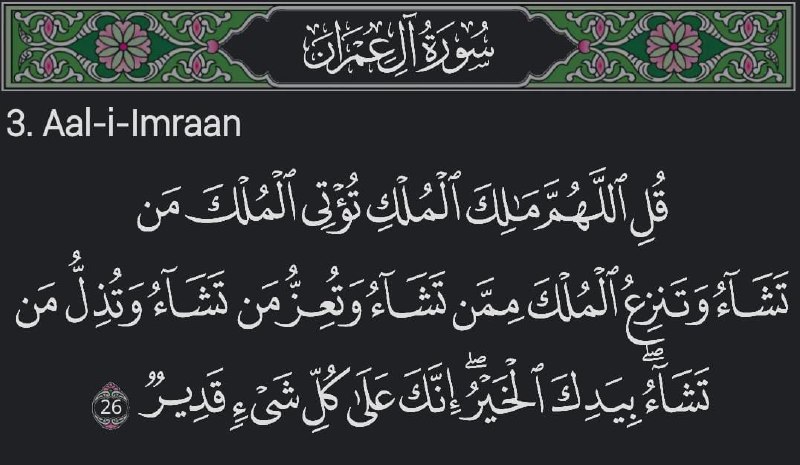 سُورَةُ آلِ عِمْرَانَ
3. Aal-i-Imraan
قُلِ ٱللَّهُمَّ مَـٰلِكَ ٱلْمُلْكِ تُؤْتِى ٱلْمُلْكَ مَن
تَشَآءُ وَتَنزِعُ ٱلْمُلْكَ مِمَّن تَشَآءُ وَتُعِزُّ مَن تَشَآءُ وَتُذِلُّ مَن
تَشَآءُ ۖ بِيَدِكَ ٱلْخَيْرُ ۖ إِنَّكَ عَلَىٰ كُلِّ شَىْءٍ قَدِيرٌ 26